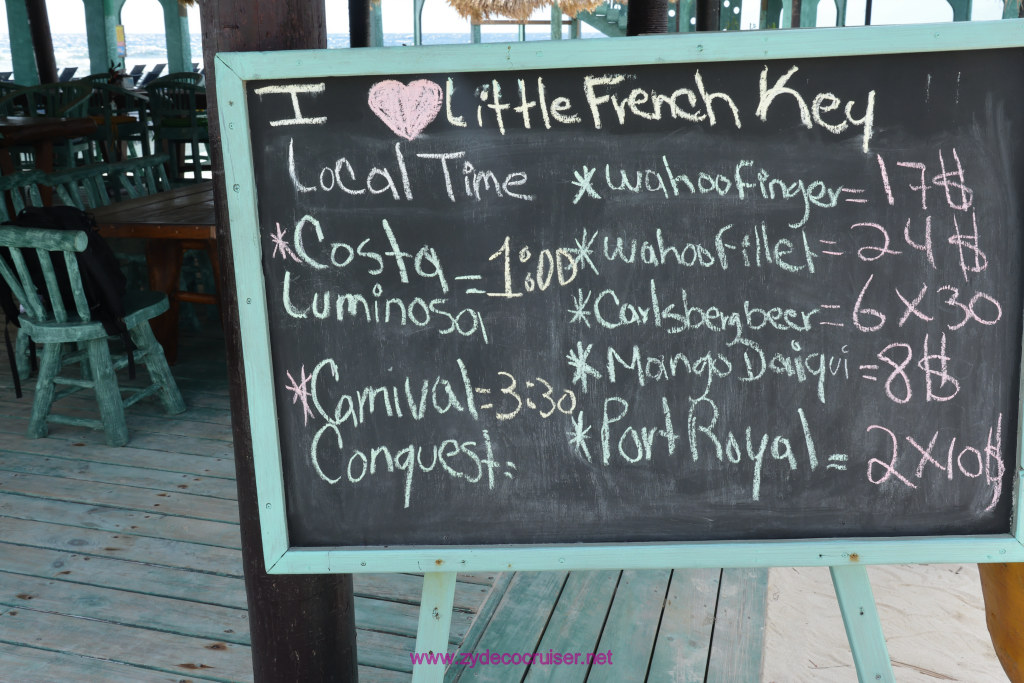 I ♥ Little French Key
Local Time
*Costa = 1:00
Luminosa
*Carnival = 3:30
Conquest:
*Wahoo Finger = 17$
*Wahoo Fillet = 24$
*Carlsberg beer = 6 X 30
*Mango Daiqui = 8$
*Port Royal = 2 X 10$
www.zydecocruiser.net